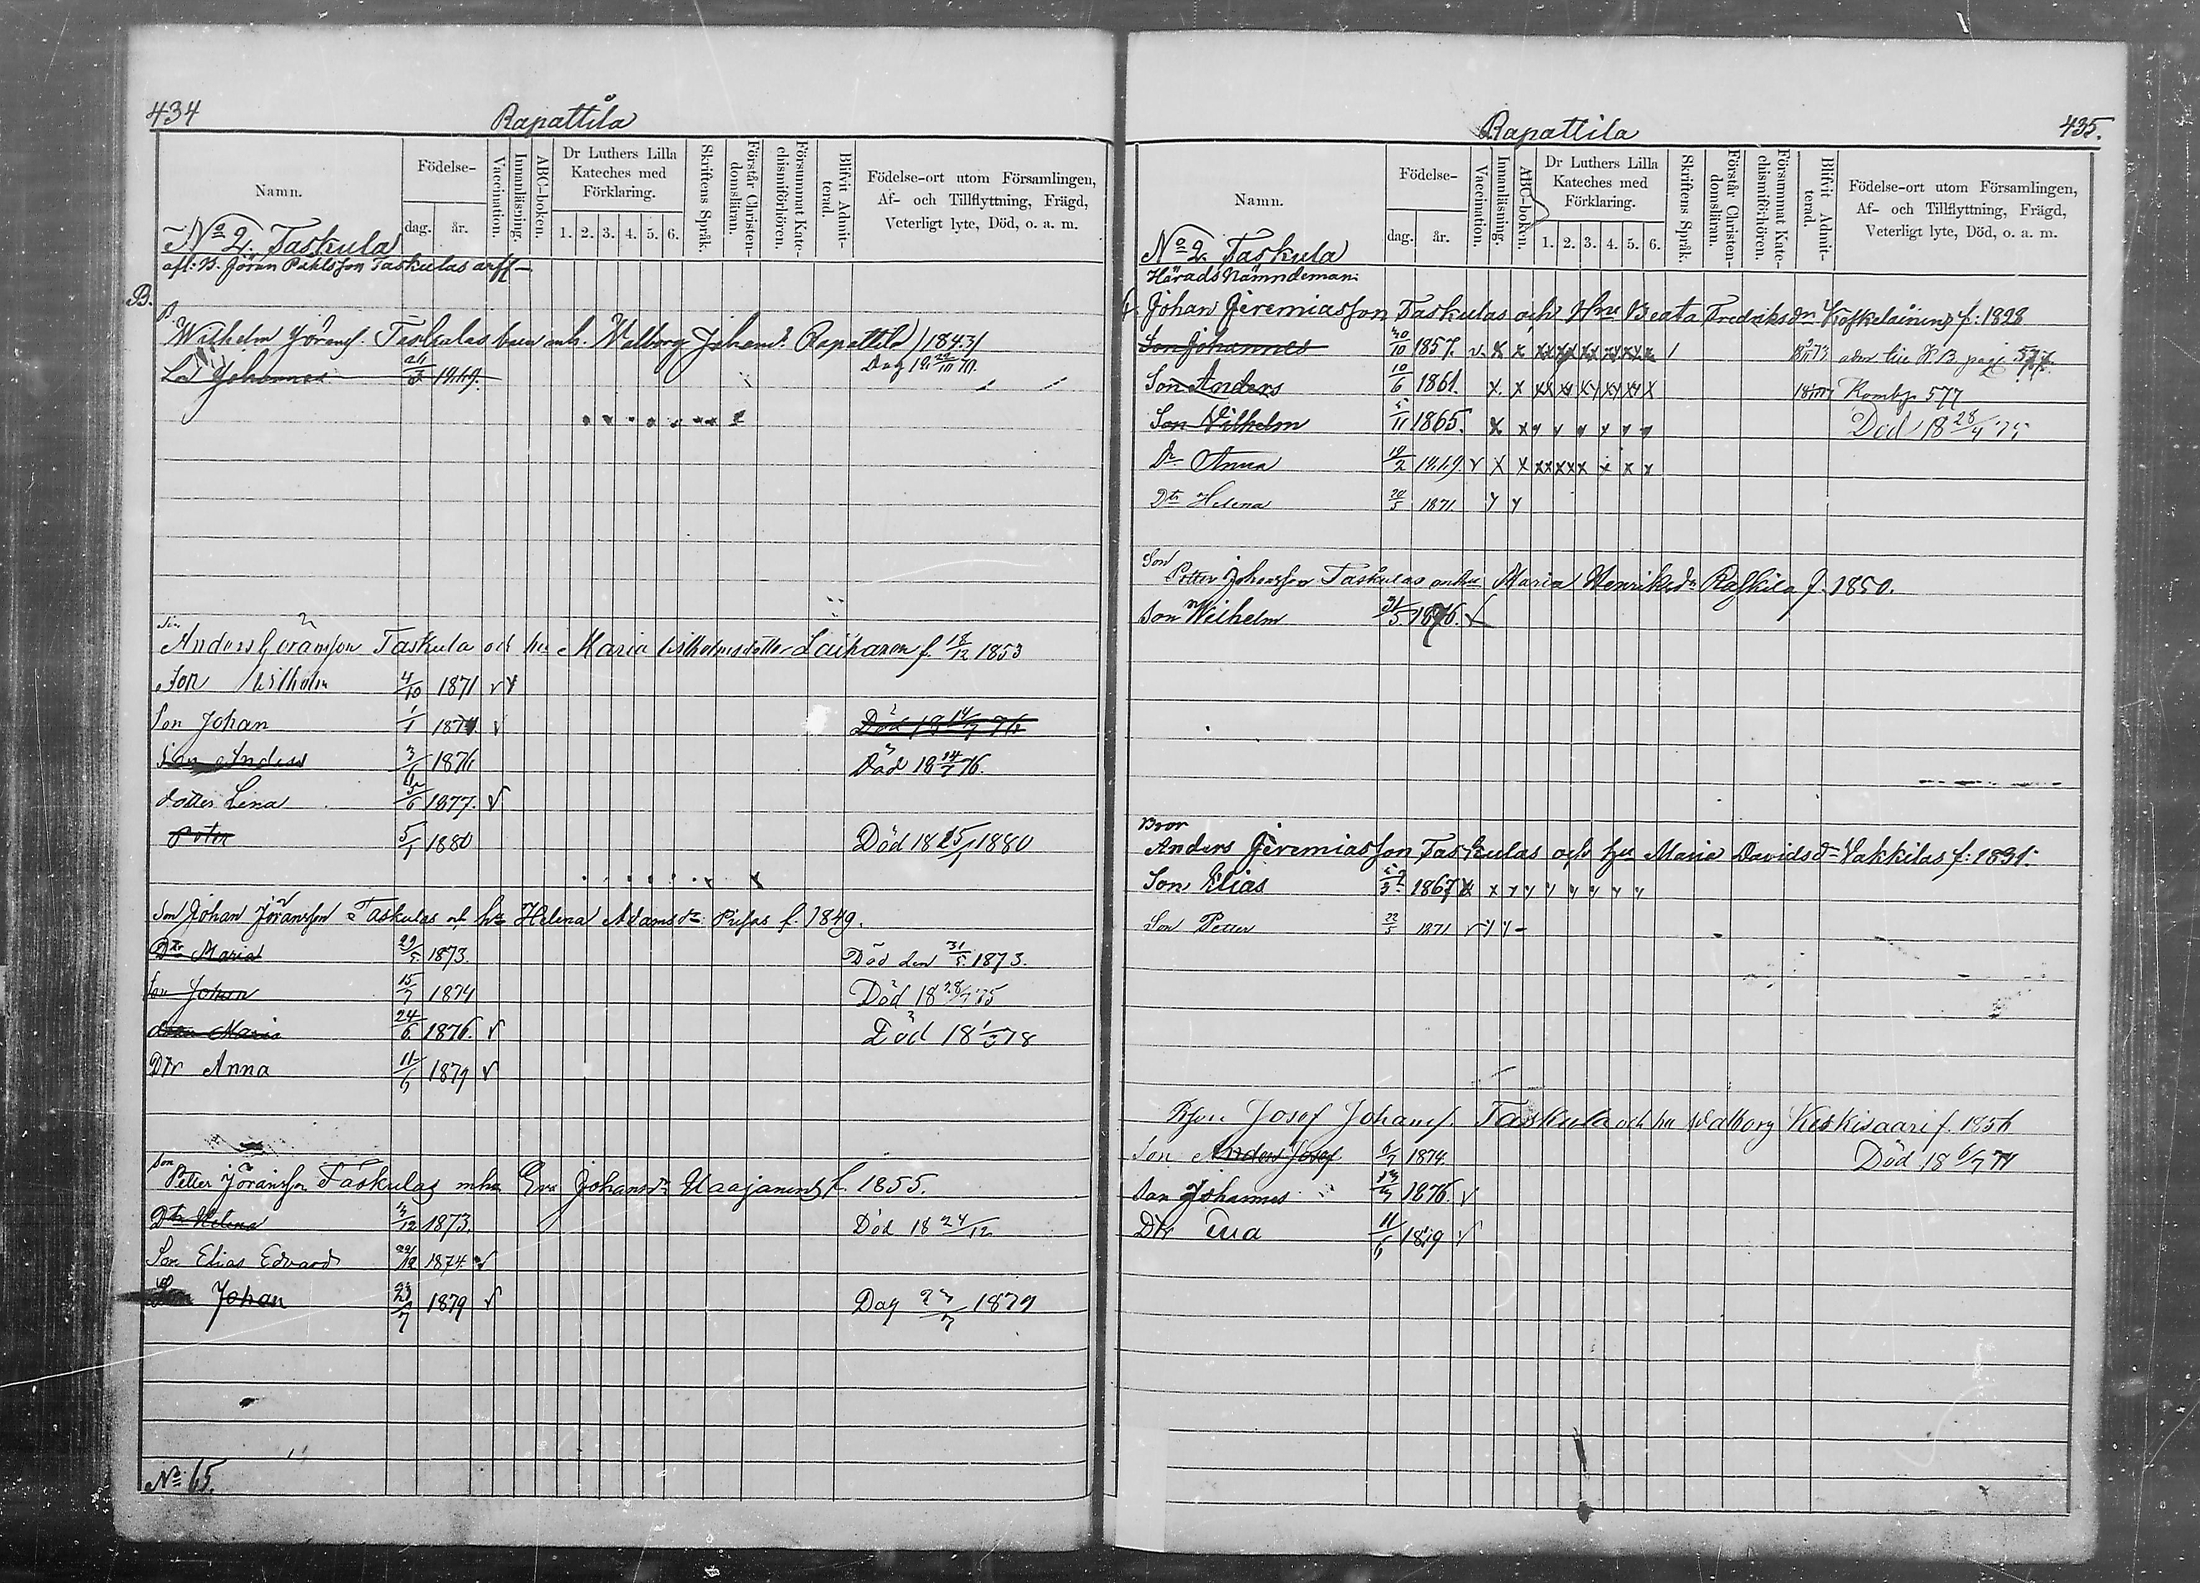 434
Rapattila
Namn.
Födelse-
dag. år.
Vaccination.
Innanläsning.
ABC-boken.
Dr Luthers Lilla Kateches med Förklaring.
1. 2. 3. 4. 5. 6.
Skriftens Språk.
Förstår Christendomsläran.
Försummat Katechismiförhören.
Blifvit Admitterad.
Födelse-ort utom Församlingen,
Af- och Tillflyttning, Frägd,
Veterligt lyte, Död, o. a. m.
No 2. Taskula
afl: B. Jöran Påhlsson Taskulas
B.
Wilhelm Jöransf. Taskulas Walborg Johansd. Rapattila 1843
Johannes
Anders Göransson Taskula och hu Maria Wilhelmsdotter Laihanen f. 18/12 1853
Son Wilhelm 4/10 1871 v
Son Johan 1/1 1874 v Död
Son Anders 1876 Död 18 14/7 76.
dotter Lina 1877. v
Peter 5/1 1880 Död 18 25/1 1880
Son Johan Jöransson Taskulas och hu Helena Adamsdr f. 1849.
Dtr Maria 29/5 1873. Död den 31/5 1873.
Son Johan 15/7 1874 Död 18 28/7 75
Maria 24/6 1876. v Död 18 1/3 78
Dtr Anna 11/6 1879 v
Son
Petter Jöransson Taskulas mhu Eva Johansdr Uaajanen f. 1855.
Dtr Helena 1873. Död 18 24/12
Son Elias Edvard 1874 v
Son Johan 23/7 1879 v Dag 23/7 1879
No 65.
Rapattila
435.
Namn.
Födelse-
dag. år.
Vaccination.
Innanläsning.
ABC-boken.
Dr Luthers Lilla Kateches med Förklaring.
1. 2. 3. 4. 5. 6.
Skriftens Språk.
Förstår Christendomsläran.
Försummat Katechismiförhören.
Blifvit Admitterad.
Födelse-ort utom Församlingen,
Af- och Tillflyttning, Frägd,
Veterligt lyte, Död, o. a. m.
No 2. Taskula
Härads Nämndeman:
Johan Jeremiasson Taskulas och Hru Beata Fredriksdr Koskelainen f: 1828
Son Johannes 30/10 1857. v.
Son Anders 10/6 1861. 577
Son Vilhelm 5/11 1865. Död 18 28/4 75
Dr Anna 1869 v
Dtr Helena 20/5 1871
Son
Petter Johansson Taskulas Maria Henriksdr Raskila f. 1850.
Son Wilhelm 31/5 1876. v
Bror
Anders Jeremiasson Taskulas och hu Maria Davidsdr Vakkilas f: 1831
Son Elias 1867
Son Petter 22/5 1871 v
Josef Johansf. Taskula och hu Walborg Keskisaari f.
Son Anders Josef 6/7 1874. Död 18 6/7 74
Son Johannes 1876. v
Dtr Eva 11/6 1879 v